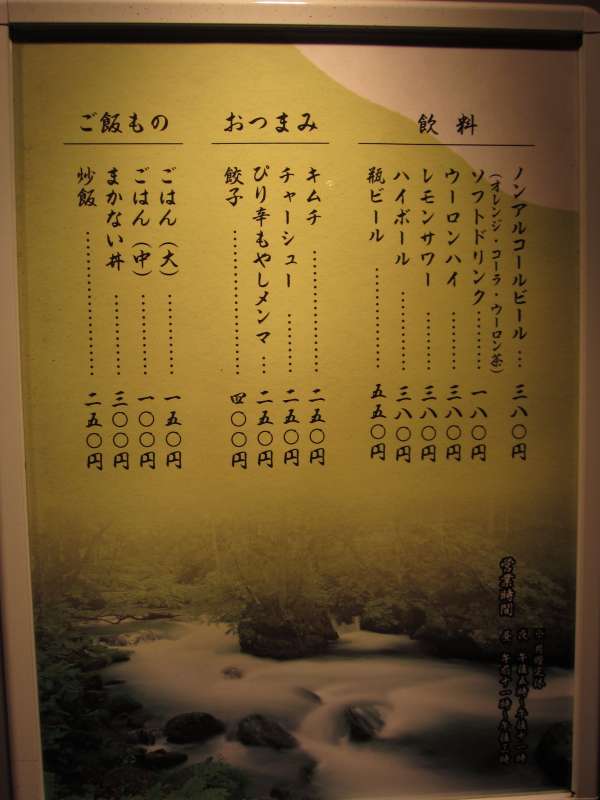 飲料
ノンアルコールビール … 三八〇円
(オレンジ・コーラ・ウーロン茶)
ソフトドリンク ……… 一八〇円
ウーロンハイ ……… 三八〇円
レモンサワー ……… 三八〇円
ハイボール ……… 三八〇円
瓶ビール ……… 五五〇円
おつまみ
キムチ ……… 二五〇円
チャーシュー ……… 二五〇円
ぴり辛もやしメンマ … 二五〇円
餃子 ……… 四〇〇円
ご飯もの
ごはん(大) ……… 一五〇円
ごはん(中) ……… 一〇〇円
まかない丼 ……… 三〇〇円
炒飯 ……… 二五〇円
営業時間